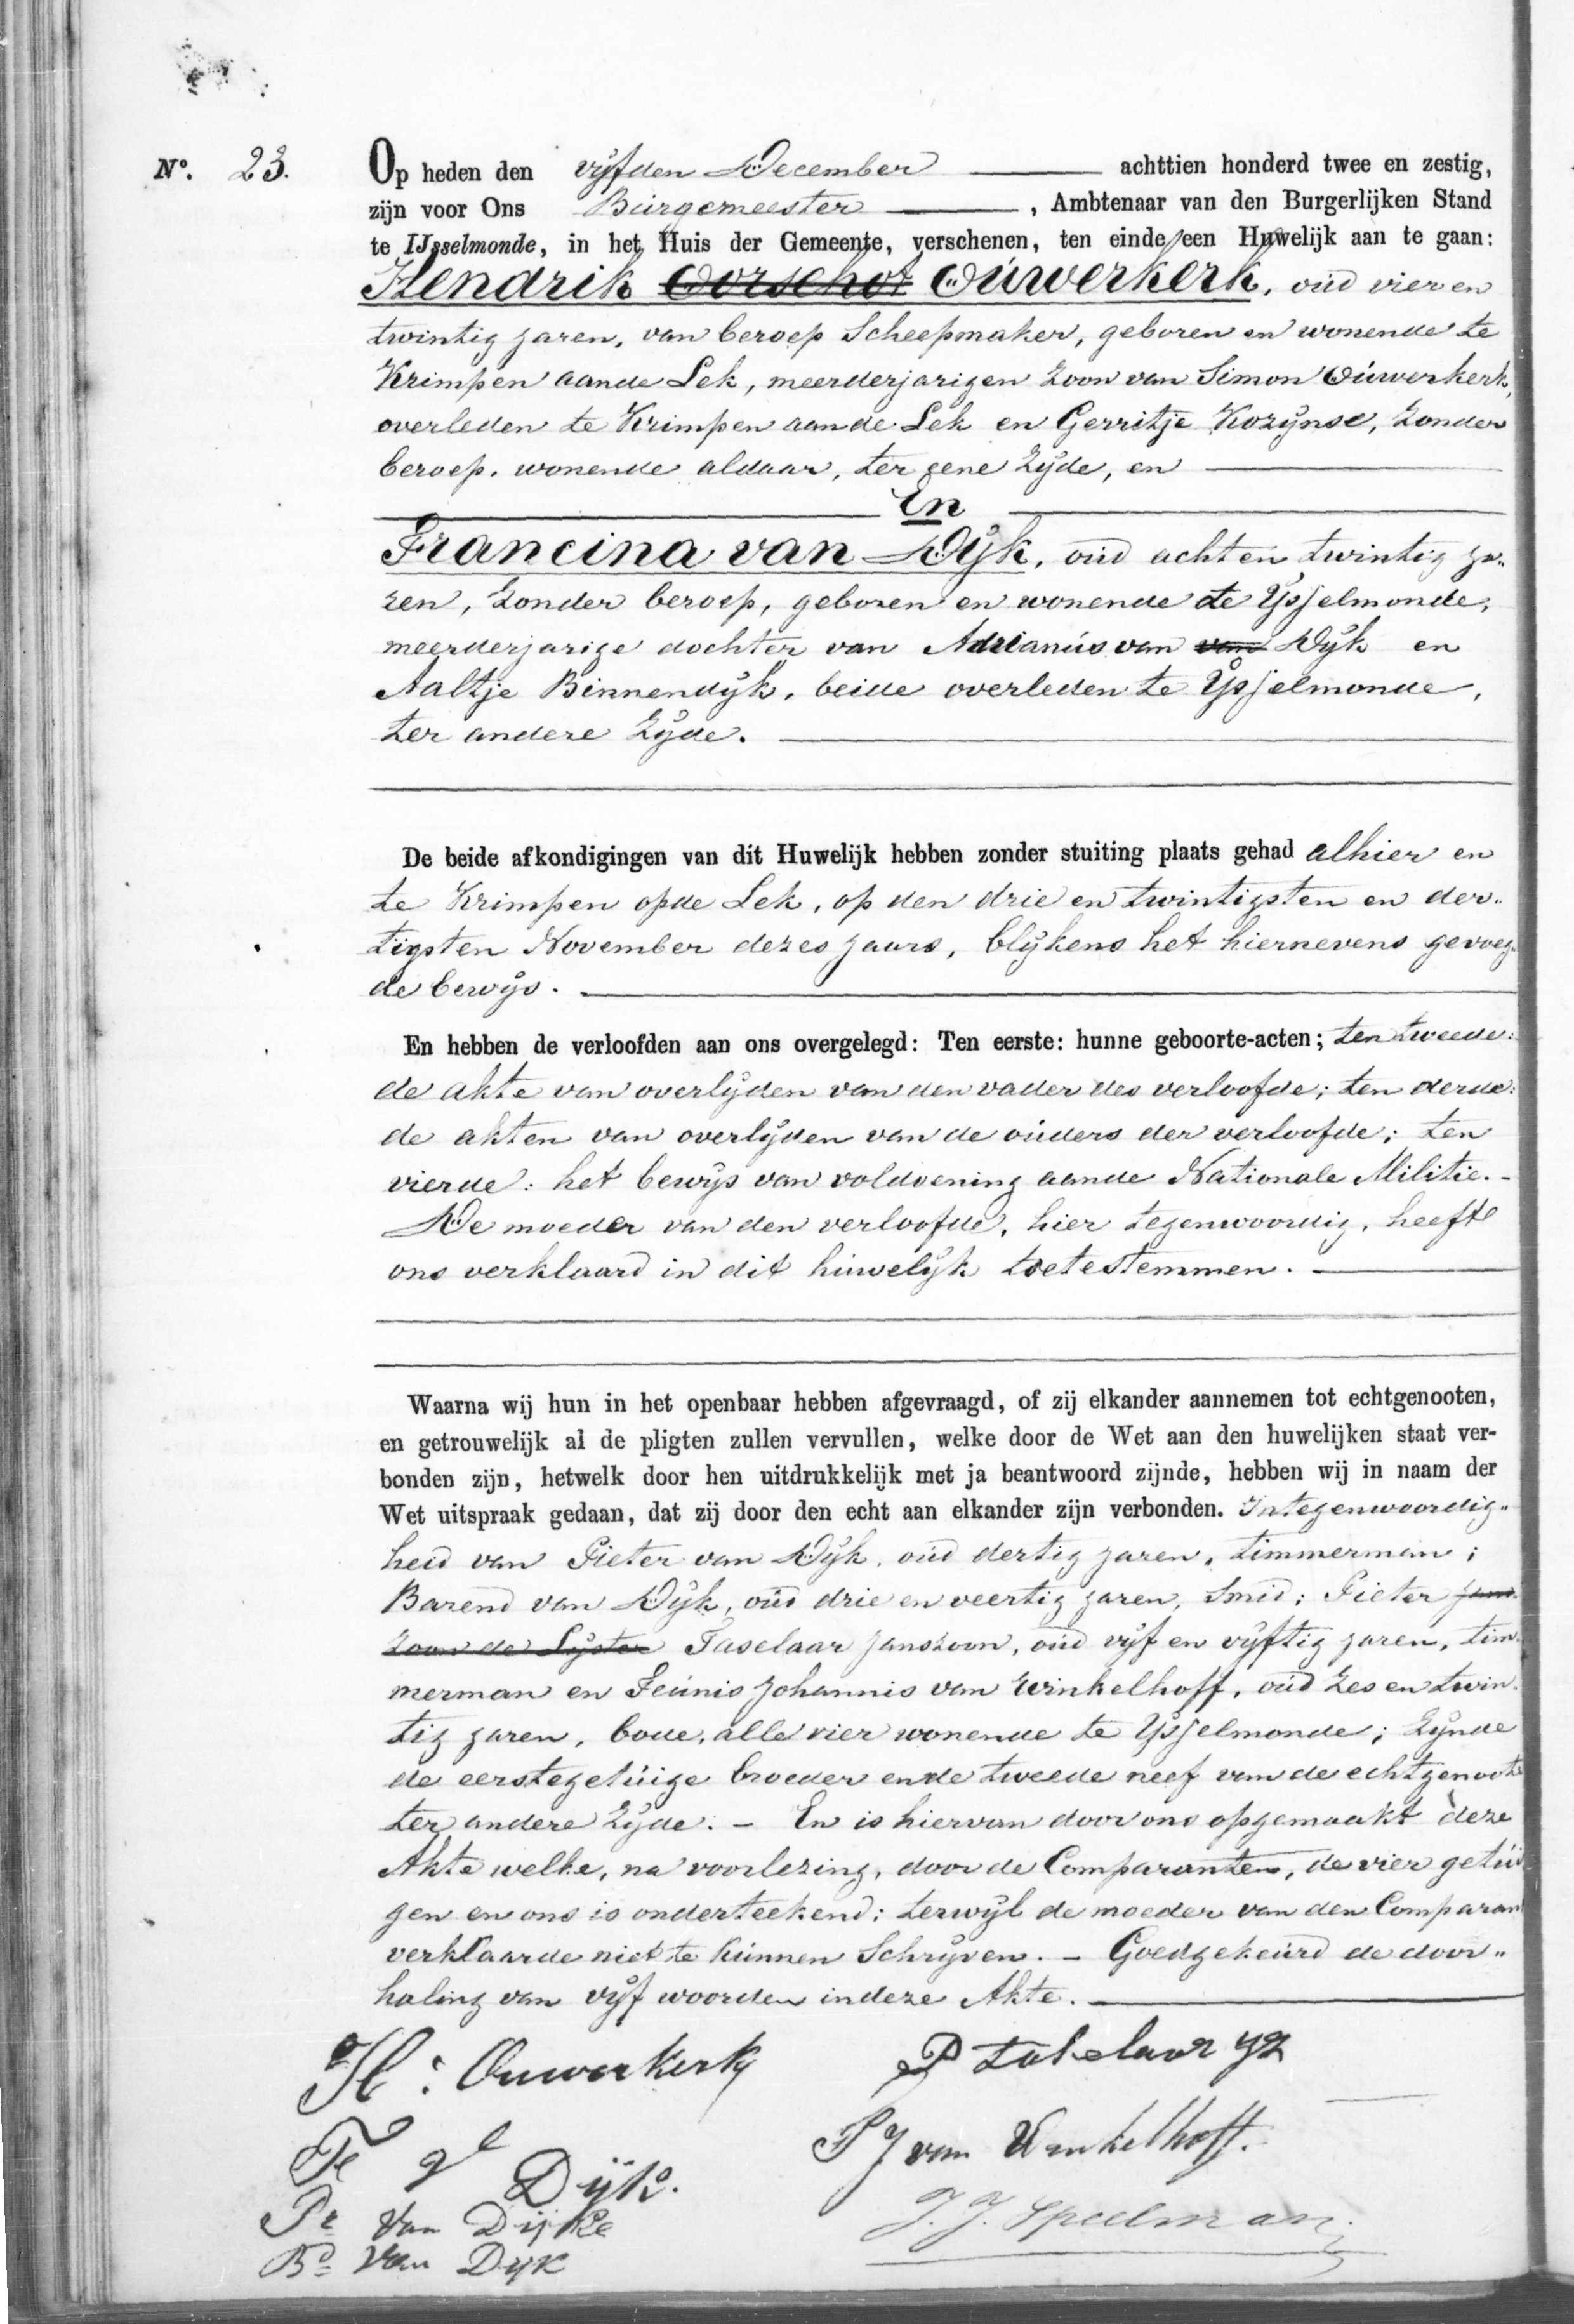 Nº. 23.
Op heden den vijfden December achttien honderd twee en zestig,
zijn voor Ons Burgemeester, Ambtenaar van den Burgerlijken Stand
te IJsselmonde, in het Huis der Gemeente, verschenen, ten einde een Huwelijk aan te gaan:
Hendrik Oorschot Ouwerkerk, oud vier en
twintig jaren, van beroep Scheepmaker, geboren en wonende te
Krimpen aande Lek, meerderjarigen zoon van Simon Ouwerkerk,
overleden te Krimpen aande Lek en Gerritje Kozijnse, zonder
beroep, wonende aldaar, ter eene zijde, en
En
Francina van Dijk, oud acht en twintig ja„
ren, zonder beroep, geboren en wonende te IJsselmonde,
meerderjarige dochter van Adrianus van van Dijk en
Aaltje Binnendijk, beide overleden te IJsselmonde,
ter andere zijde.
De beide afkondigingen van dit Huwelijk hebben zonder stuiting plaats gehad alhier en
te Krimpen opde Lek, op den drie en twintigsten en der„
tigsten November dezes jaars, blijkens het hiernevens gevoeg„
de bewijs.
En hebben de verloofden aan ons overgelegd: Ten eerste: hunne geboorte-acten; ten tweede:
de akte van overlijden van den vader des verloofde; ten derde:
de akten van overlijden van de ouders der verloofde; ten
vierde: het bewijs van voldoening aande Nationale Militie. -
De moeder van den verloofde, hier tegenwoordig, heeft
ons verklaard in dit huwelijk toetestemmen.
Waarna wij hun in het openbaar hebben afgevraagd, of zij elkander aannemen tot echtgenooten,
en getrouwelijk al de pligten zullen vervullen, welke door de Wet aan den huwelijken staat ver-
bonden zijn, hetwelk door hen uitdrukkelijk met ja beantwoord zijnde, hebben wij in naam der
Wet uitspraak gedaan, dat zij door den echt aan elkander zijn verbonden. Integenwoordig„
heid van Pieter van Dijk, oud dertig jaren, timmerman;
Barend van Dijk, oud drie en veertig jaren, Smid; Pieter Jans
zoon de Lijster Taselaar Janszoon, oud vijf en vijftig jaren, tim„
merman en Teunis Johannis van Winkelhoff, oud zes en twin„
tig jaren, bode, alle vier wonende te IJsselmonde; zijnde
de eerstegetuige broeder ende tweede neef van de echtgenoote
ter andere zijde. - En is hiervan door ons opgemaakt deze
Akte welke, na voorlezing, door de Comparanten, de vier getui„
gen en ons is onderteekend; terwijl de moeder van den Comparant
verklaarde niet te kunnen Schrijven. - Goedgekeurd de door„
haling van vijf woorden indeze Akte.
H: Ouwerkerk
Dijk.
Pr Van Dijke
Bd Van Dyk
P
van Winkelhoff.
J. J. Speelman